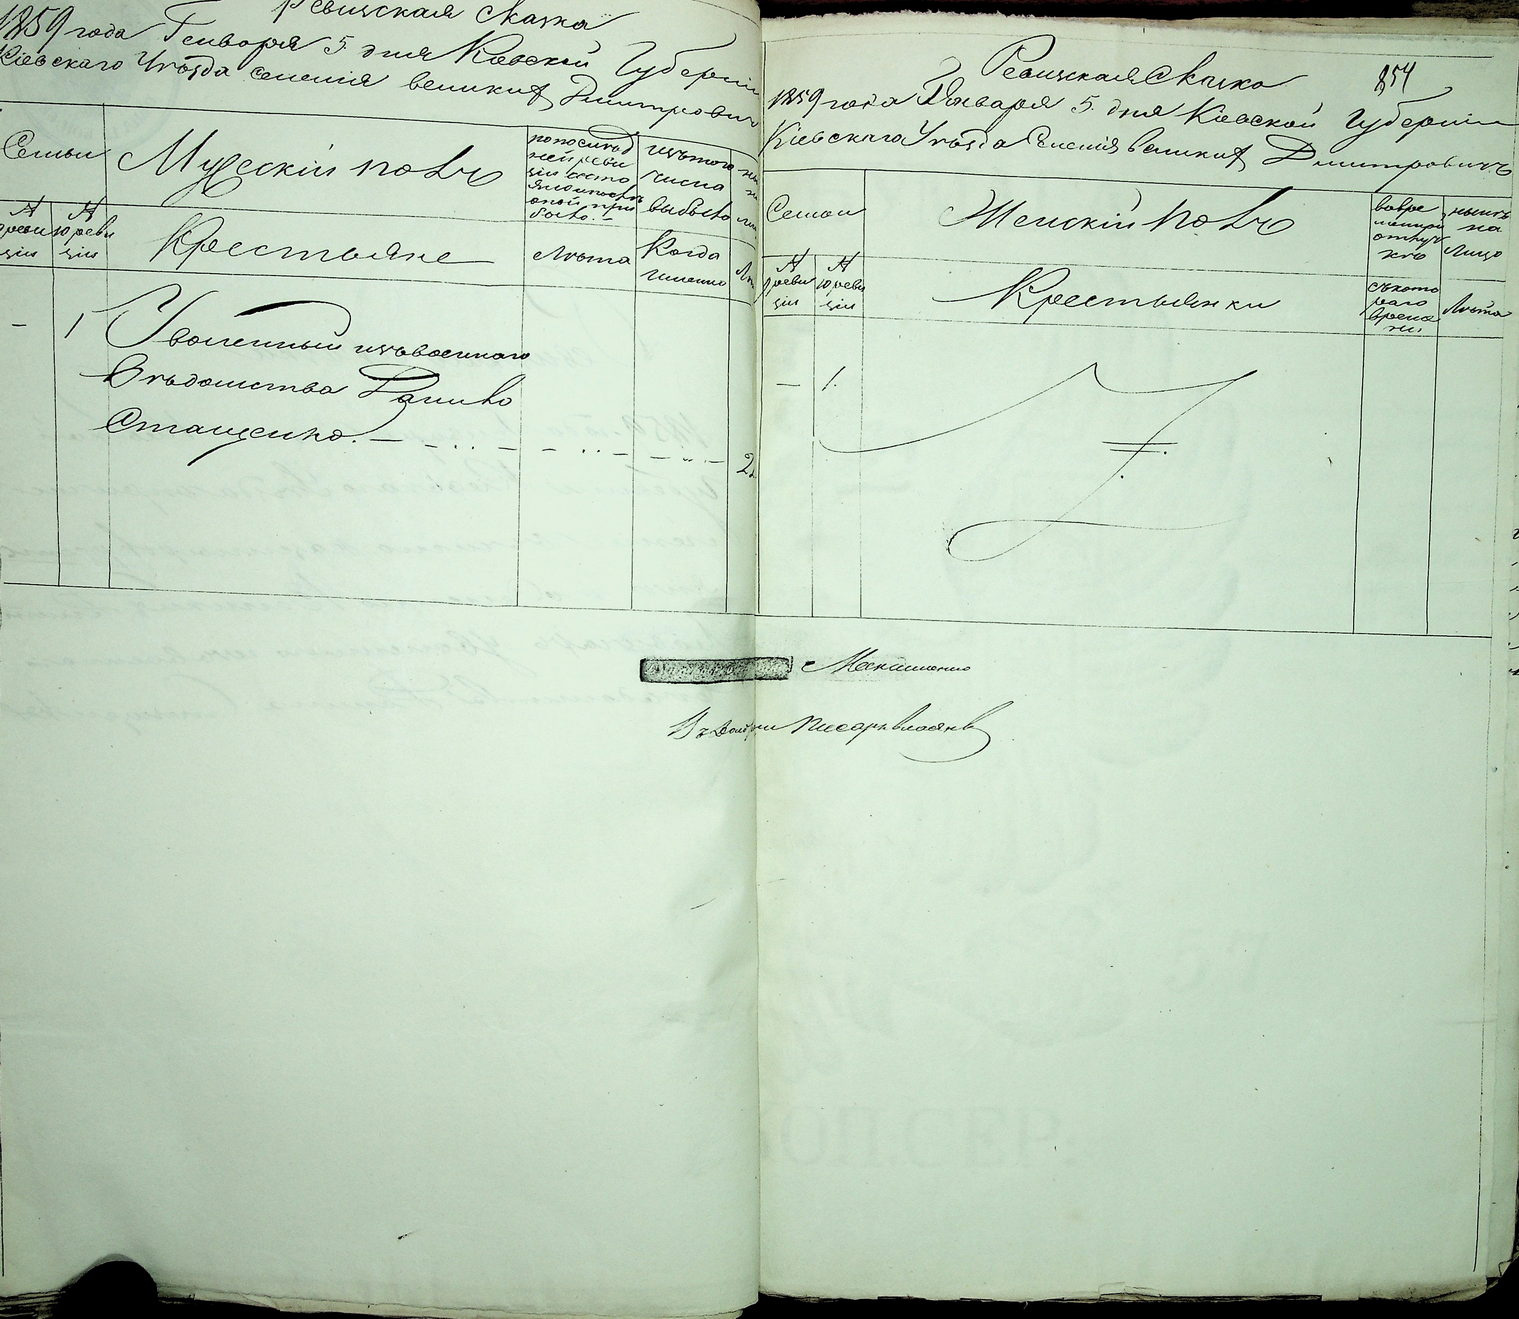 Ревизская Сказка
1859 года Генваря 5. дня Кіевской Губерніи
Кіевскаго Уѣзда селенія великих Дмитрович
Семьи
Мужескій полъ
по послѣд
ней реви
зіи состо
яло и послѣ
оной при
было.
изъ того
числа
выбыло
№
ревизіи
№
10 ревизіи
Крестьяне
Лѣта
Когда
именно
— 1 Уволенный изъ военнаго
Вѣдомства Данило
Стащенко. —
2
Ревизская Сказка
854
1859 года Января 5. дня Кіевской Губерніи
Кіевскаго Уѣзда Селенія великих Дмитровичъ
Семьи
Женскій полъ
во вре
менной
отлуч
кѣ
нынѣ
на
лицо
№
ревизіи
№
10 ревизіи
Крестьянки
съ кото
раго
време
ни
Лѣта
— 1.
писарь
ОП.СЕР